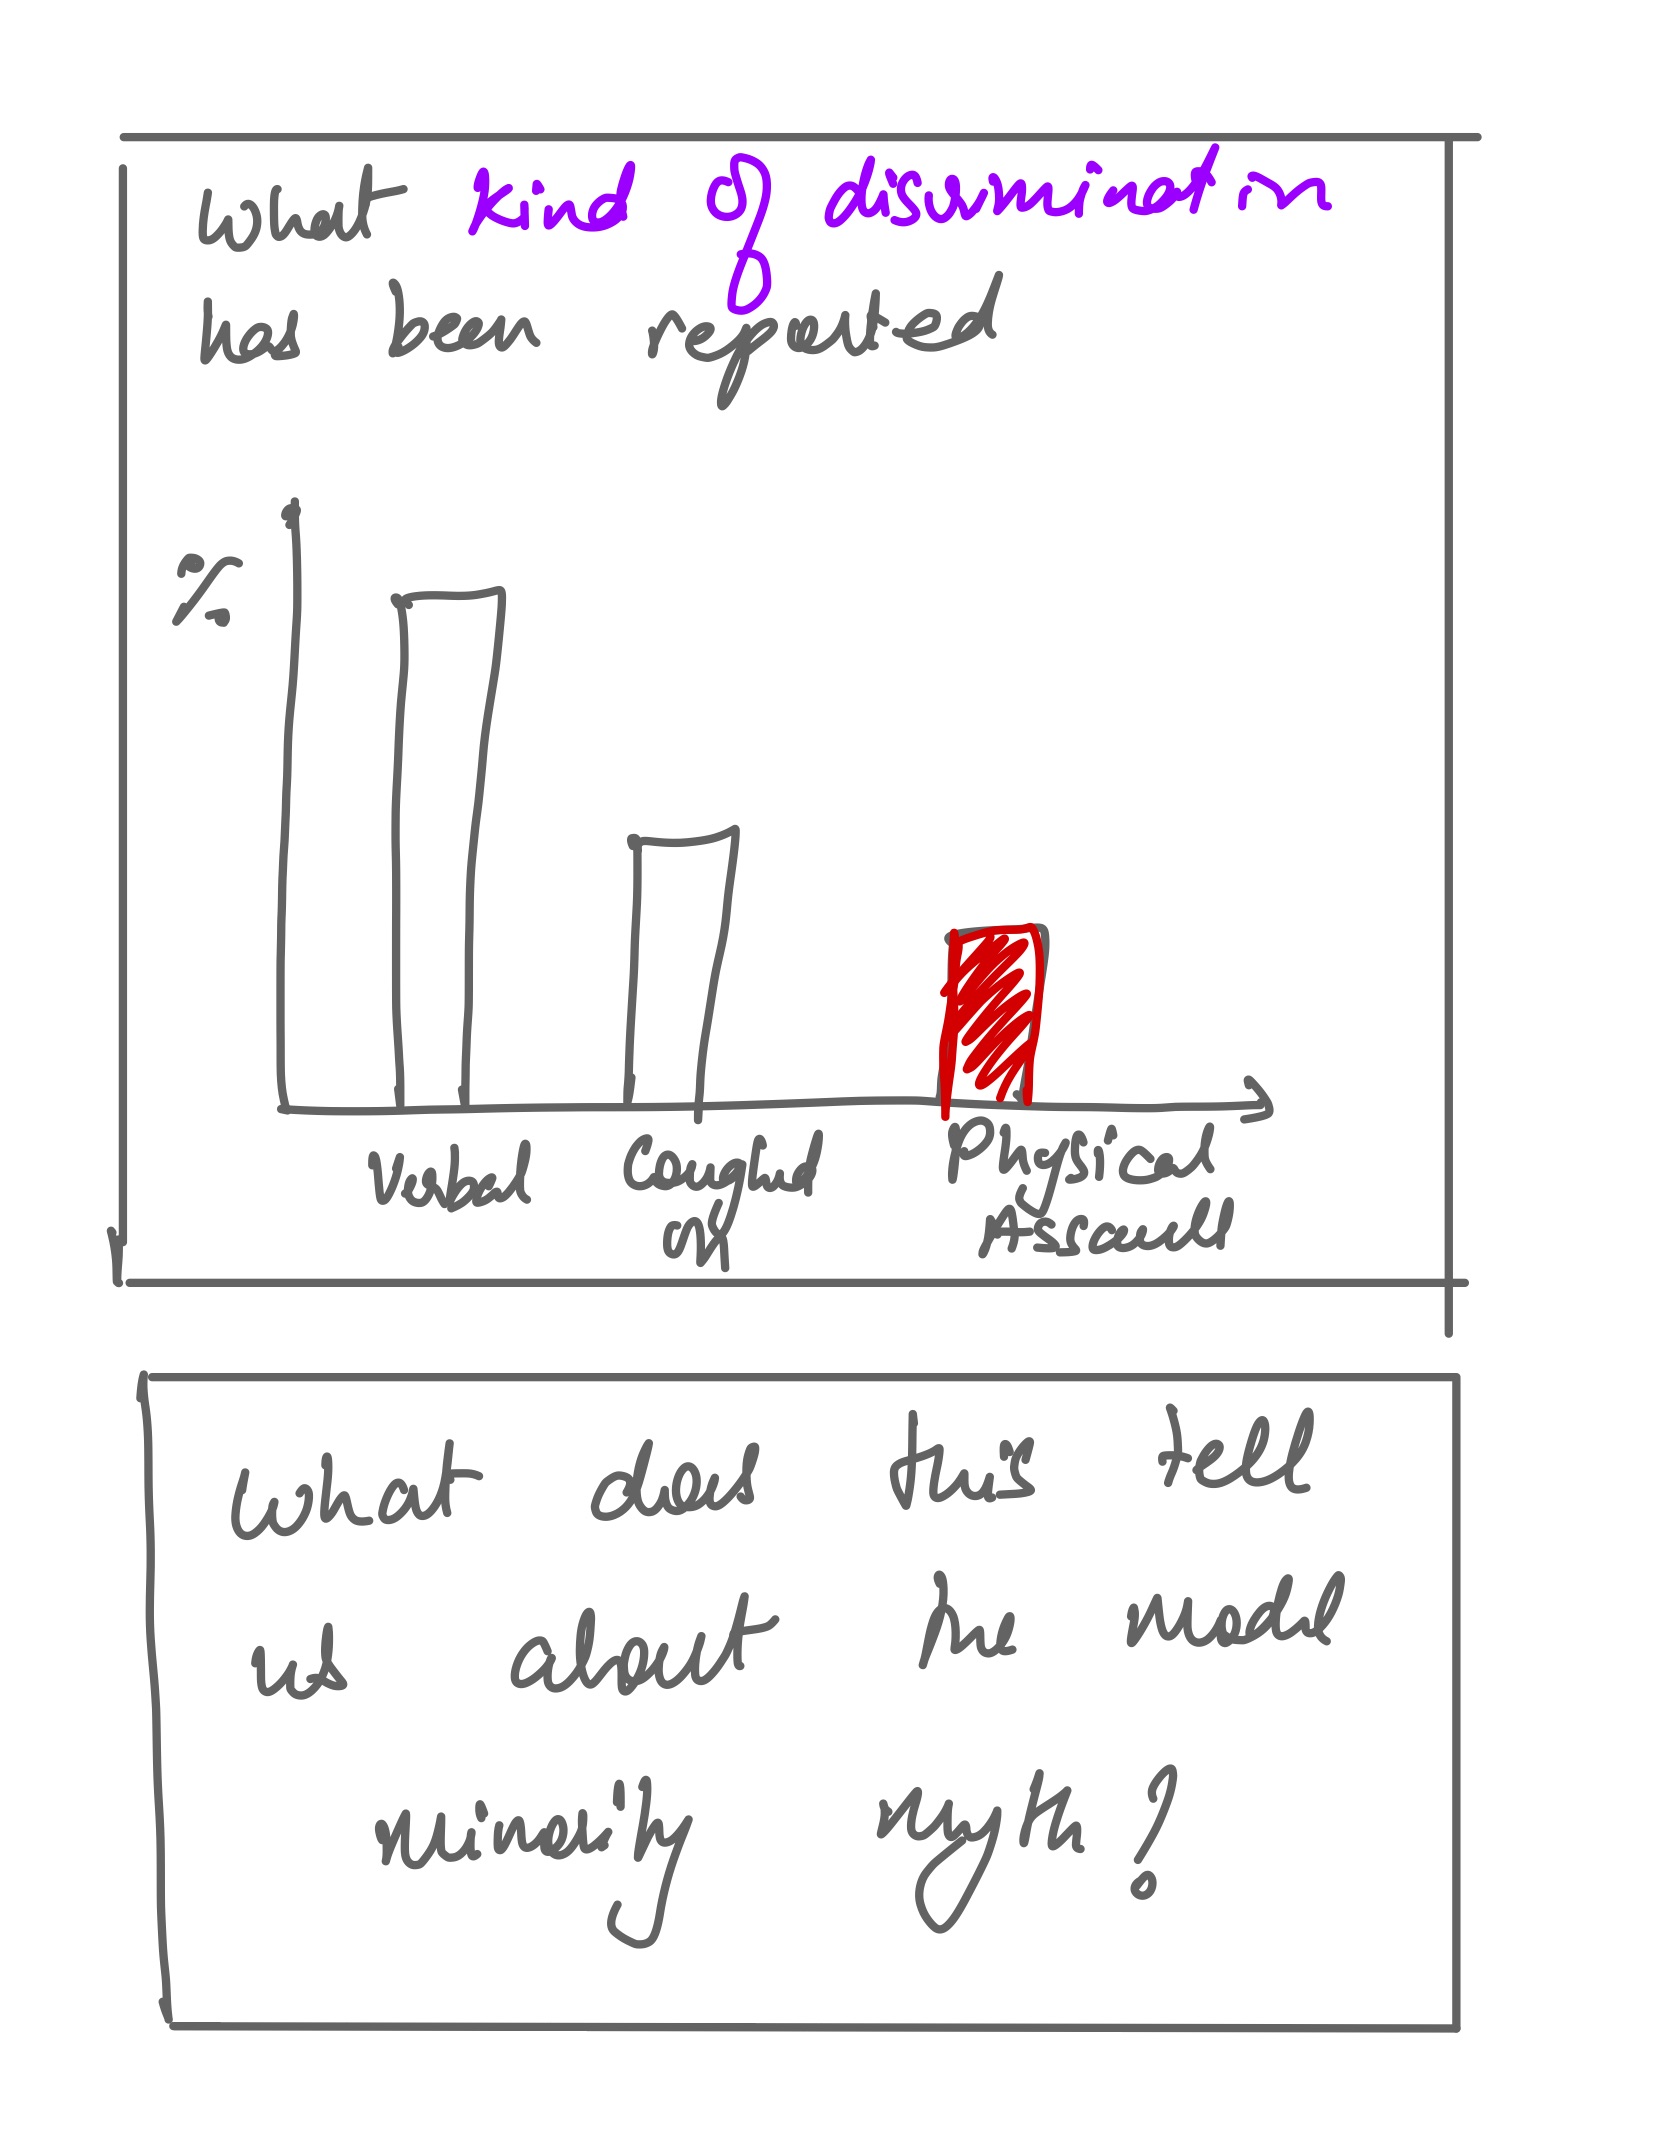 What kind of discrimination
has been reported
%
Verbal
Coughed
on
Physical
Assault
What does this tell
us about the model
minority myth?